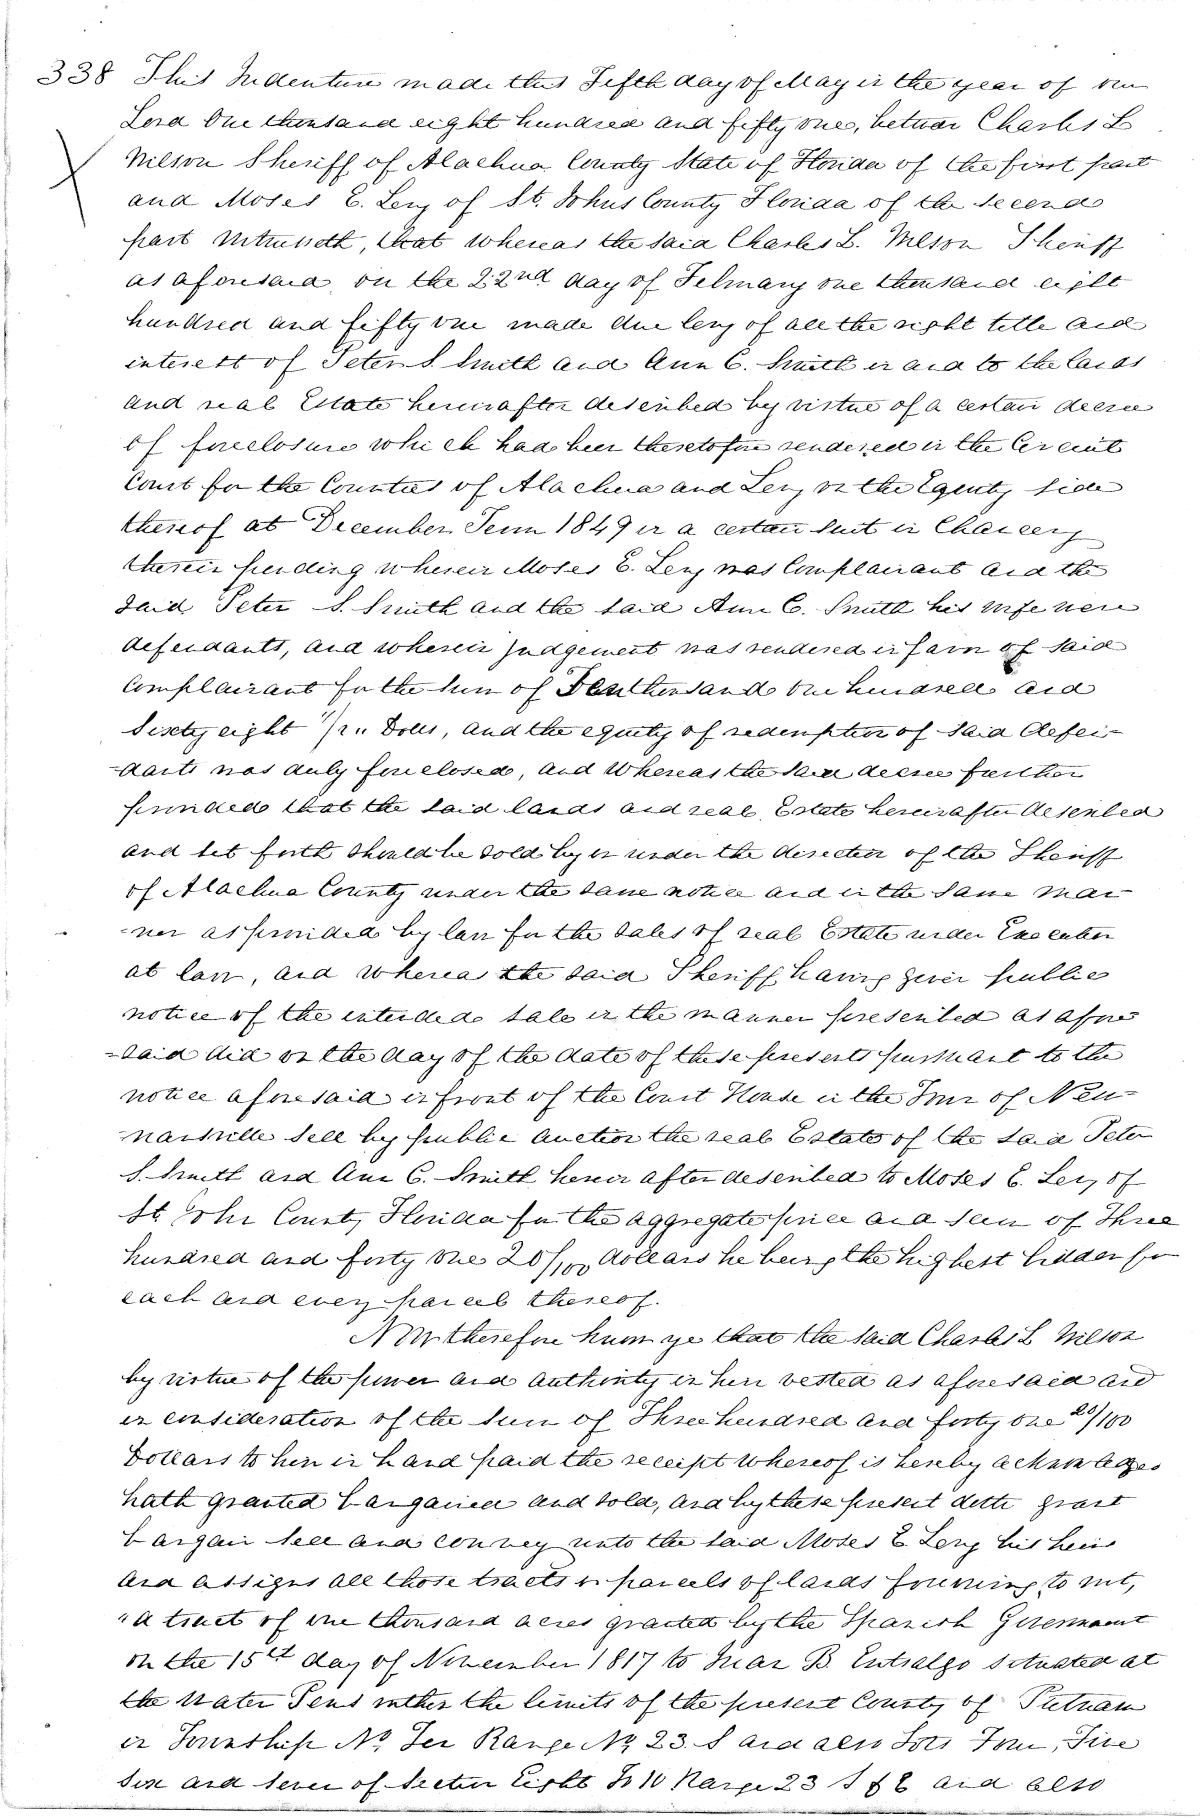 338 This Indenture made this Fifth day of May in the year of our
Lord One thousand eight hundred and fifty one, between Charles L
Wilson Sheriff of Alachua County State of Florida of the first part
and Moses E. Levy of St. Johns County Florida of the second
part Witnesseth, that whereas the said Charles L. Wilson Sheriff
as aforesaid on the 22nd day of February one thousand eight
hundred and fifty one made due levy of all the right title and
interest of Peter S. Smith and Ann C. Smith in and to the lands
and real Estate hereinafter described by virtue of a certain decree
of foreclosure which had been theretofore rendered in the Circuit
Court for the Counties of Alachua and Levy on the Equity side
thereof at December Term 1849 in a certain suit in Chancery
therein pending wherein Moses E. Levy was Complainant and the
said Peter S. Smith and the said Ann C. Smith his wife were
defendants, and wherein judgement was rendered in favor of said
Complainant for the sum of thousand One hundred and
Sixty eight Dolls, and the equity of redemption of said defen-
-dants was duly foreclosed, and Whereas the said decree further
provided that the said lands and real Estate hereinafter described
and set forth should be sold by or under the direction of the Sheriff
of Alachua County under the same notice and in the same man-
-ner as provided by law for the sales of real Estate under Execution
at law, and whereas the said Sheriff having given public
notice of the intended sale in the manner prescribed as afore
-said did on the day of the date of these presents pursuant to the
notice aforesaid in front of the Court House in the Town of New-
nansville sell by public auction the real Estate of the said Peter
S. Smith and Ann C. Smith herein after described to Moses E. Levy of
St. John County Florida for the aggregate price and sum of Three
hundred and forty one 20/100 dollars he being the highest bidder for
each and every parcel thereof.
Now therefore know ye that the said Charles L Wilson
by virtue of the power and authority in him vested as aforesaid and
in consideration of the sum of Three hundred and forty one 20/100
Dollars to him in hand paid the receipt whereof is hereby acknowledged
hath granted bargained and sold, and by these present doth grant
bargain sell and convey unto the said Moses E Levy his heirs
and assigns all those tracts or parcels of lands following to wit,
a tract of one thousand acres granted by the Spanish Government
on the 15th day of November 1817 to Juan B. Entralgo situated at
the Water Pens within the limits of the present County of Putnam
in Township No Ten Range No 23 S and also Lots Four, Five
Six and Seven of Section Eight To 10 Range 23 S & E and also